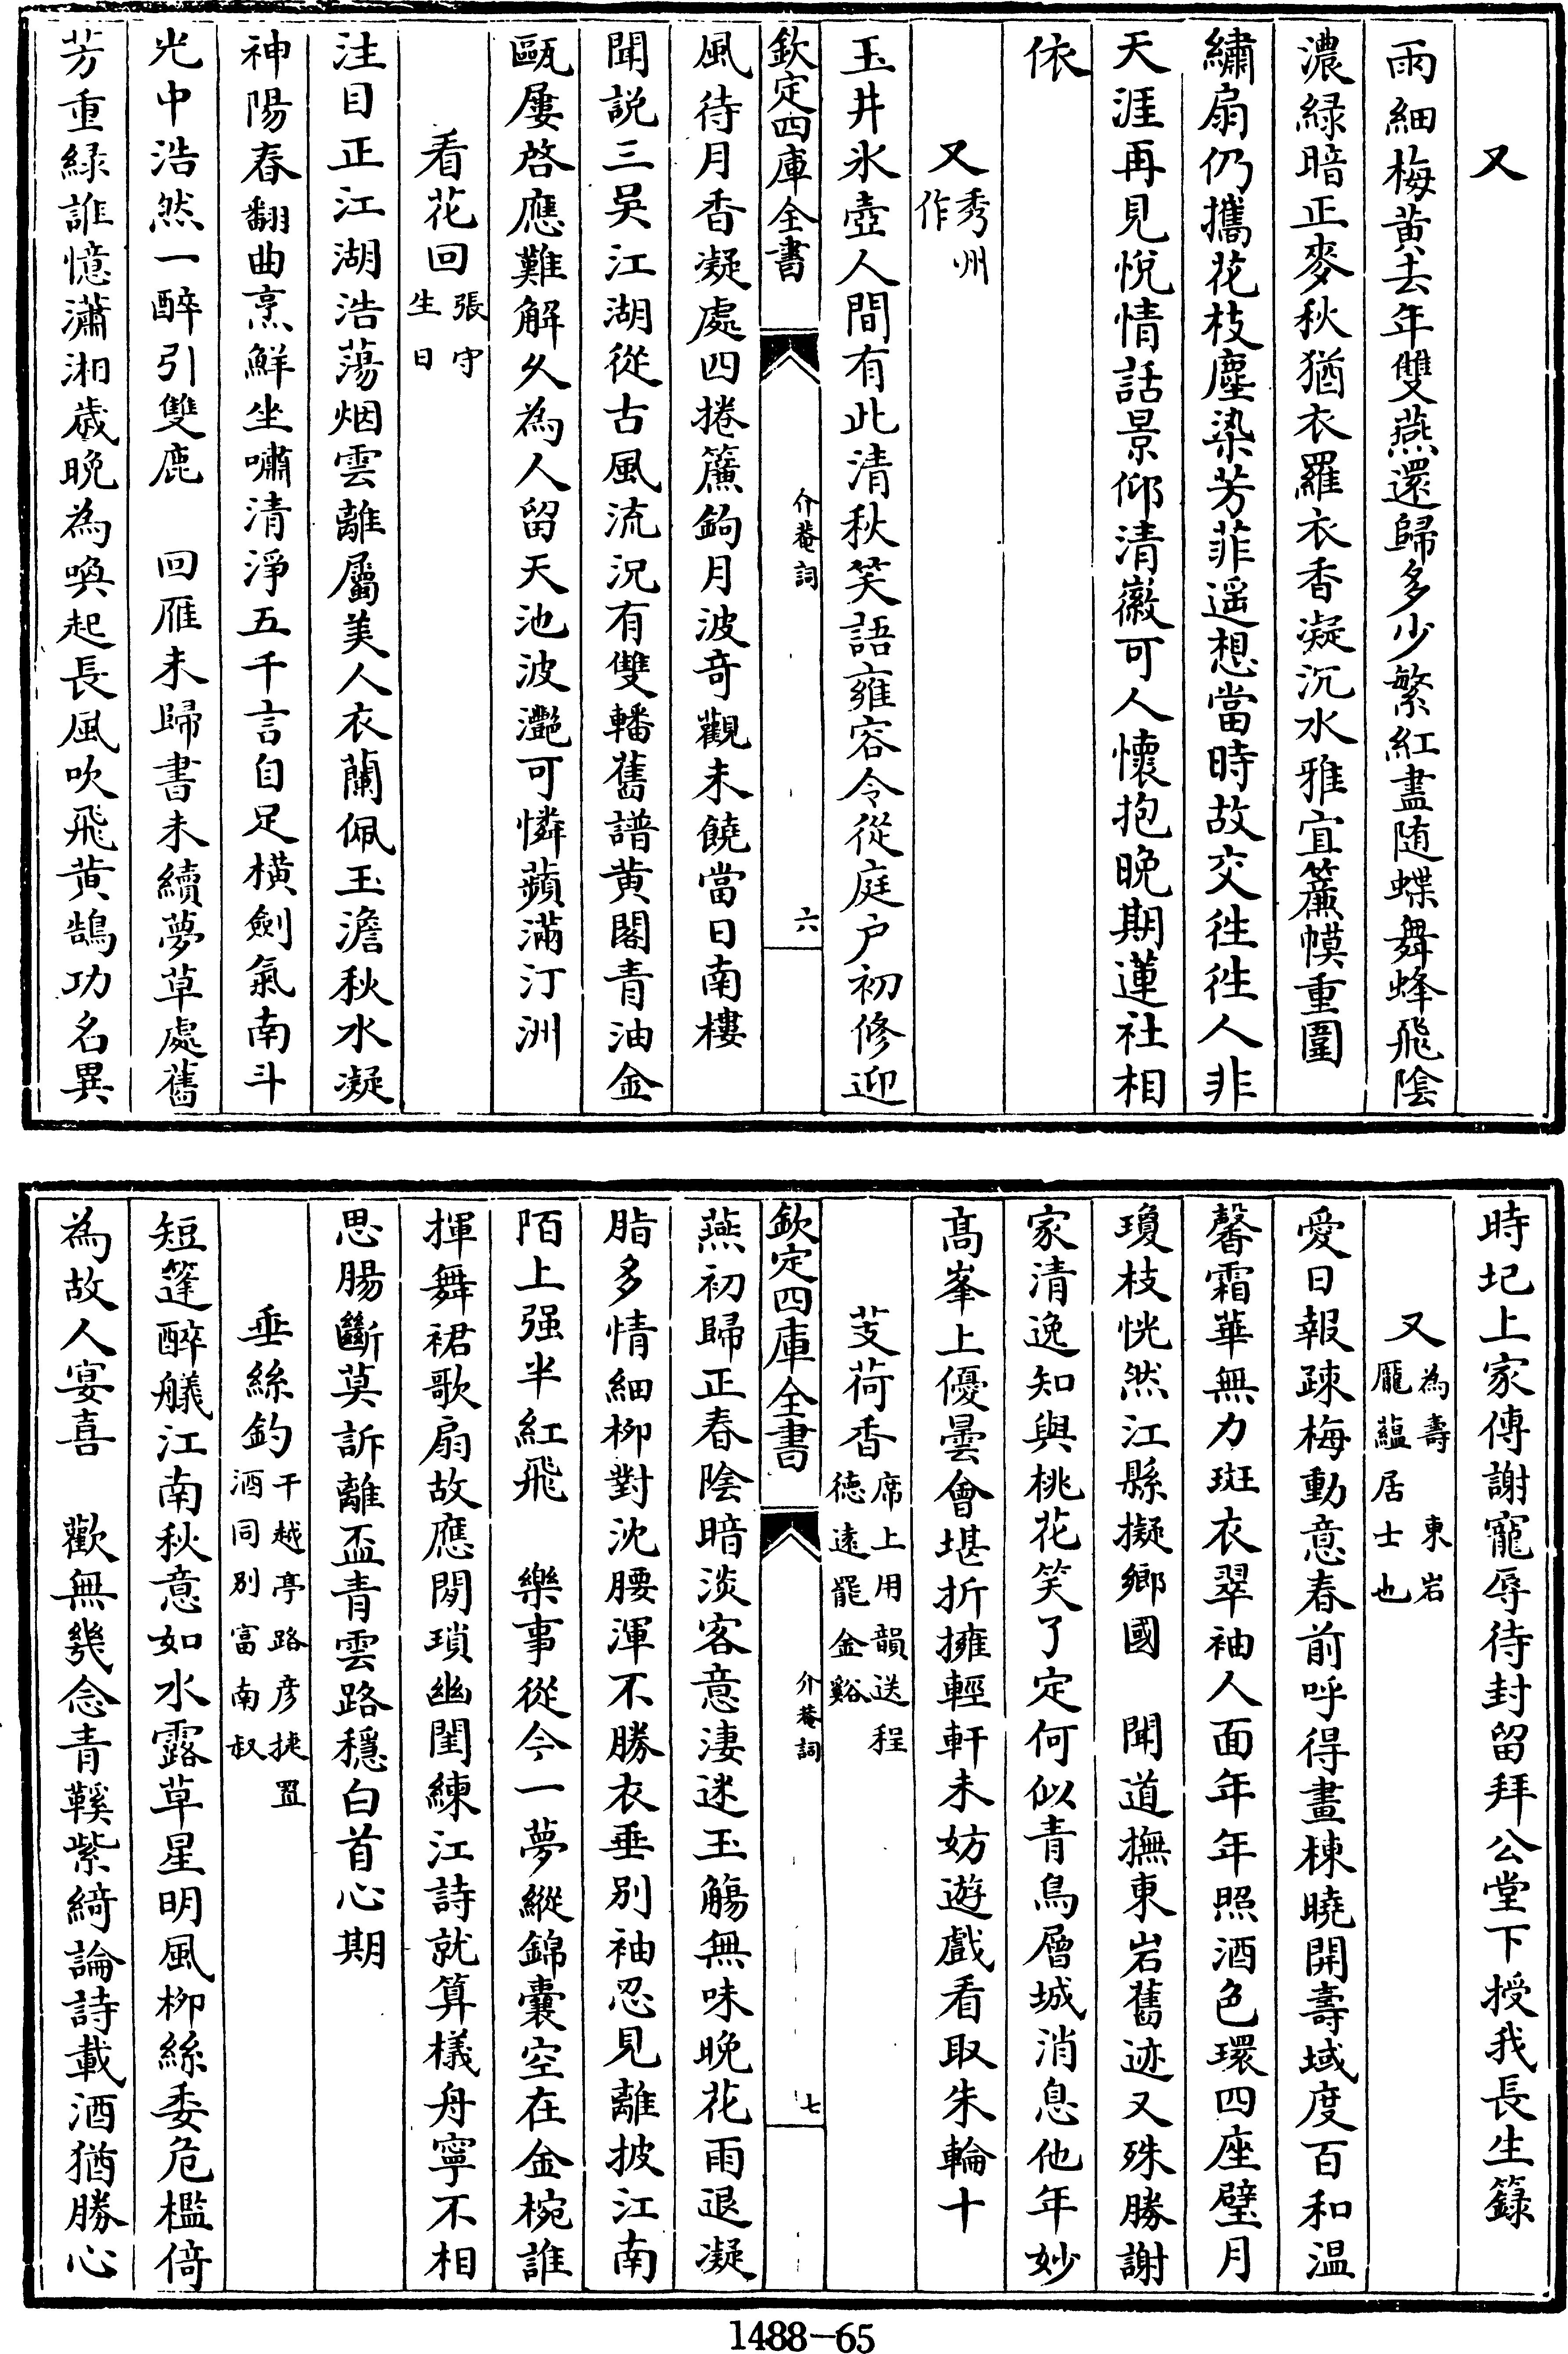 又
雨細梅黃去年雙燕還歸多少繁紅盡随蝶舞蜂飛陰
濃緑暗正麥秋猶衣羅衣香凝沉水雅宜簾幙重圍
繡扇仍攜花枝塵染芳菲遥想當時故交徃徃人非
天涯再見悅情話景仰清徽可人懷抱晚期蓮社相
依
又秀州作
玉井氷壺人間有此清秋笑語雍容令從庭户初修迎
欽定四庫全書
介菴詞
六
風待月香凝處四捲簾鉤月波奇觀未饒當日南樓
聞説三吴江湖從古風流況有雙轓舊譜黄閣青油金
甌屢啓應難解久為人留天池波灧可憐蘋滿汀洲
看花回張守生日
注目正江湖浩蕩烟雲離屬美人衣蘭佩玉澹秋水凝
神陽春翻曲烹鮮坐嘯清淨五千言自足橫劍氣南斗
光中浩然一醉引雙鹿　回雁未歸書未續夢草處舊
芳重緑誰憶瀟湘歲晚為喚起長風吹飛黄鵠功名異
時圮上家傳謝寵辱待封留拜公堂下授我長生籙
又為壽東岩龎藴居士也
愛日報疎梅動意春前呼得畫棟曉開壽域度百和温
馨霜華無力斑衣翠袖人面年年照酒色環四座璧月
瓊枝恍然江縣擬鄉國　聞道撫東岩舊迹又殊勝謝
家清逸知與桃花笑了定何似青鳥層城消息他年妙
髙峯上優曇會堪折擁輕軒未妨遊戲看取朱輪十
芰荷香席上用韻送程德逺罷金谿
欽定四庫全書
介菴詞
七
燕初歸正春陰暗淡客意淒迷玉觴無味晚花雨退凝
脂多情細栁對沈腰渾不勝衣垂别袖忍見離披江南
陌上强半紅飛　樂事從今一夢縱錦囊空在金椀誰
揮舞裙歌扇故應閒瑣幽閨練江詩就算樣舟寧不相
思腸斷莫訴離盃青雲路穩白首心期
垂絲釣干越亭路彦捷置酒同别富南叔
短篷醉艤江南秋意如水露草星明風栁絲委危檻倚
為故人宴喜　歡無㡬念青鞵紫綺論詩載酒猶勝心
1488-65